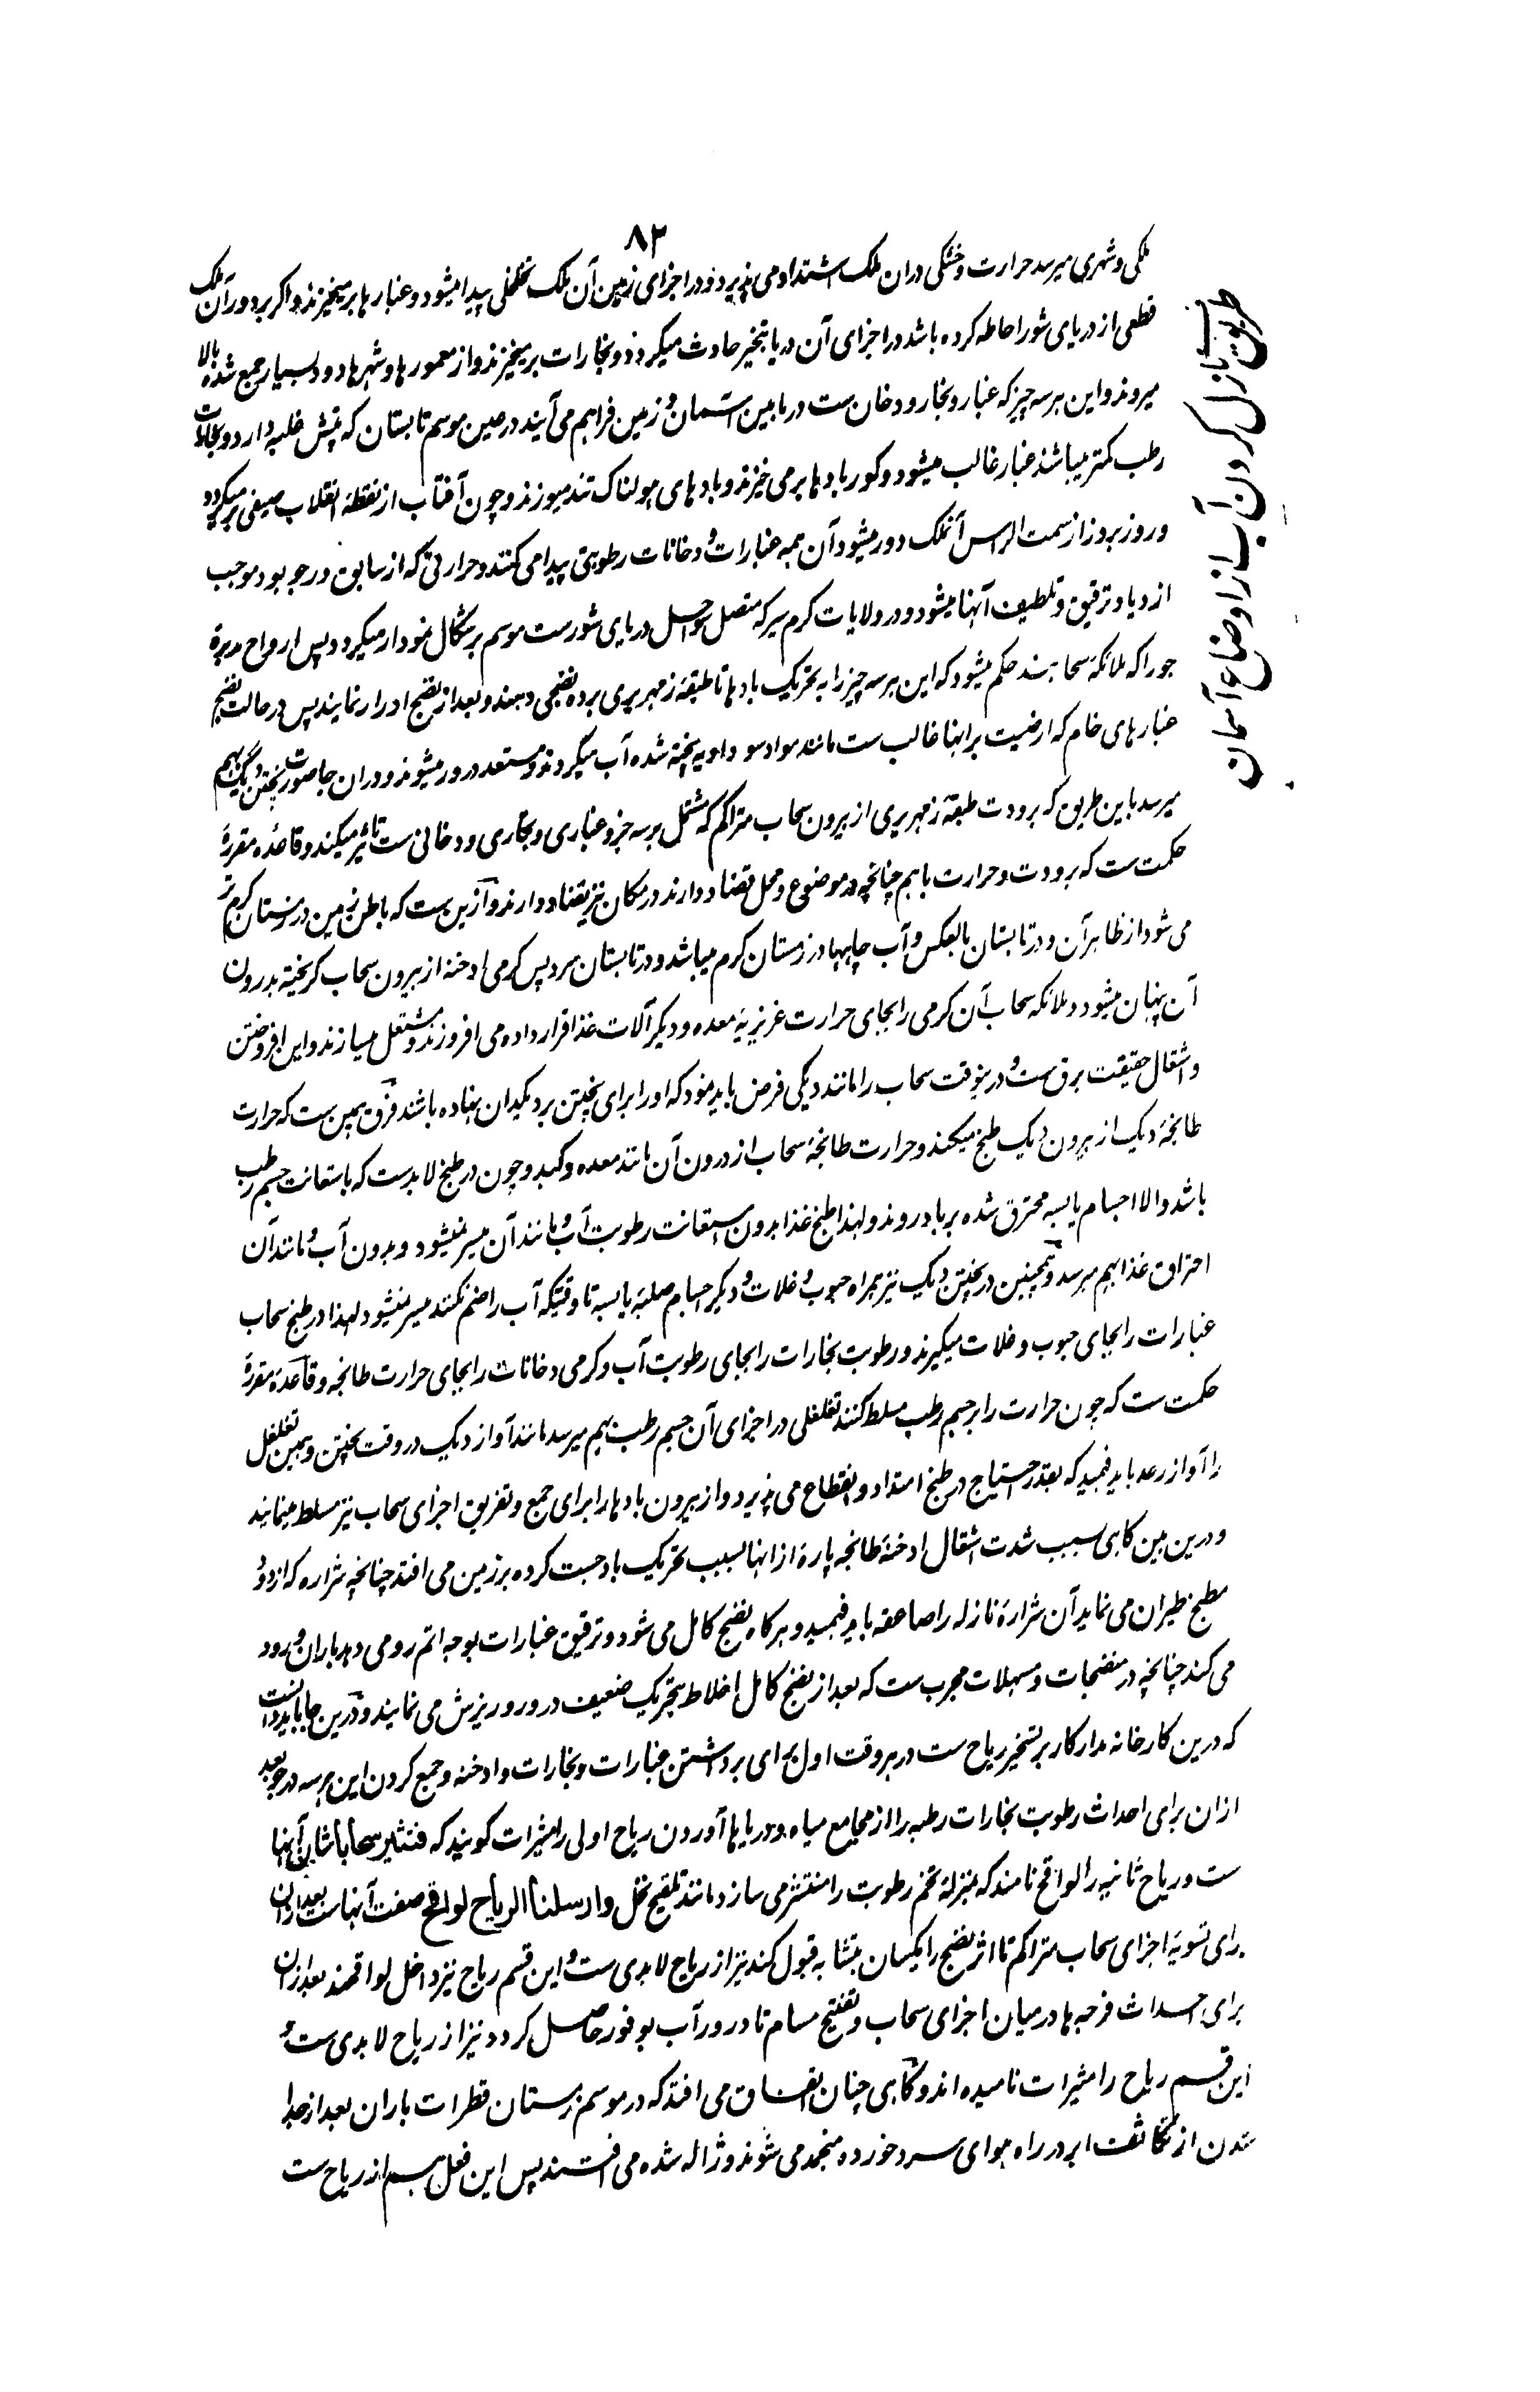 ۸۲
ملکی و شهری میرسد حرارت و خشکی دران ملک اشتداد می پذیرد و در اجزای زمین آن ملک تخلخلی پیدا میشود و غبارها بر میخیزند و اگر بر دور آن ملک
قطعی از دریای شور احاطه کرده باشد در اجزای آن دریا تبخیر حادث میگردد و بخارات بر میخیزند و از معمورها و شهرها دود بسیار جمع شده بالا
میروند و این هر سه چیز که غبار و بخار و دخان ست در مابین آسمان و زمین فراهم می آیند در عین موسم تابستان که تپش غلبه دارد و بخارات
رطب کمتر میباشند غبار غالب میشود و کورباد ها بر می خیزند و بادهای هولناک تند میوزند و چون آفتاب از نقطهٔ انقلاب صیفی بر میگردد
و روز بروز از سمت الراس آنملک دور میشود آن همه غبارات و دخانات رطوبتی پیدا می کنند و حرارتی که از سابق در جو بود موجب
ازدیاد ترقیق و تلطیف آنها میشود و در ولایات گرم سیر که متصل سواحل دریای شورست موسم برشکال نمودار میگردد پس ارواح مدبرهٔ
جو را که ملائکهٔ سحاب‌اند حکم میشود که این هر سه چیز را به تحریک بادها تا طبقهٔ زمهریری برده نضجی دهند و بعد از نضج ادرار نمایند پس در حالت نضج
غبارهای خام که ارضیت بر اینها غالب ست مانند مواد سوداویه پخته شده آب میگردند و مستعد درور میشوند و دران جا صورت پختن دیگ بهم
میرسد باین طریق که برودت طبقهٔ زمهریری از بیرون سحاب متراکم که مشتمل بر سه جزو غباری و بخاری و دخانی ست تاثیر میکند و قاعدهٔ مقررهٔ
حکمت ست که برودت و حرارت باهم چنانچه در موضوع و محل تضاد دارند در مکان نیز تضاد دارند و ازین ست که باطن زمین در زمستان گرم تر
می شود از ظاهر آن و در تابستان بالعکس و آب چاهها در زمستان گرم میباشد و در تابستان سرد پس گرمی ادخنه از بیرون سحاب گریخته بدرون
آن پنهان میشود و ملائکه سحاب آن گرمی را بجای حرارت غریزیهٔ معده و دیگر آلات غذا قرار داده می افروزند و مشتعل میسازند و این افروختن
و اشتعال حقیقت برق ست و درینوقت سحاب را مانند دیگی فرض باید نمود که او را برای پختن بر دیگدان نهاده باشند فرق همین ست که حرارت
طابخهٔ دیگ از بیرون دیگ طبخ میکند و حرارت طابخهٔ سحاب از درون آن مانند معده و کبد و چون در طبخ لابدست که باستعانت جسم رطب
باشد والا اجسام یابسه محترق شده بر باد روند و لهذا طبخ غذا بدون استعانت رطوبت آب و مانند آن میسر نمیشود و بدون آب و مانند آن
احتراق غذا بهم میرسد و همچنین در پختن دیگ نیز همراه حبوب و غلات و دیگر اجسام صلبهٔ یابسه تا وقتیکه آب را ضم نکنند میسر نمیشود لهذا در طبخ سحاب
غبارات را بجای حبوب و غلات میگیرند و رطوبت بخارات را بجای رطوبت آب و گرمی دخانات را بجای حرارت طابخه و قاعدهٔ مقررهٔ
حکمت ست که چون حرارت را بر جسم رطب مسلط کنند تغلغلی در اجزای آن جسم رطب بهم میرسد مانند آواز دیگ در وقت پختن و همین تغلغل
را آواز رعد باید فهمید که بقدر احتیاج در طبخ امتداد و انقطاع می پذیرد و از بیرون بادها را برای جمع و تفریق اجزای سحاب نیز مسلط مینمایند
و درین بین گاهی سبب شدت اشتعال ادخنهٔ طابخه پارهٔ از انها بسبب تحریک باد جست کرده بر زمین می افتد چنانچه شراره که از دود
مطبخ طیران می نماید آن شرارهٔ نازله را صاعقه باید فهمید و هر گاه نضج کامل می شود و ترقیق غبارات بوجه اتم رو می دهد باران ورود
می کند چنانچه در منضجات و مسهلات مجرب ست که بعد از نضج کامل اخلاط بتحریک ضعیف درور و ریزش می نمایند و درین جا باید دانست
که درین کارخانه مدار کار بر تسخیر ریاح ست در هر وقت اول برای برداشتن غبارات و بخارات و ادخنه و جمع کردن این هر سه در جو بعد
ازان برای احداث رطوبت بخارات رطبه را از مجامع میاه و دریاها آوردن ریاح اولی را مثیرات گویند که فتثیر سحابا شان آنها
ست و ریاح ثانیه را لواقح نامند که بمنزلهٔ تخم رطوبت را منتشر می سازد مانند تلقیح نخل وارسلنا الریاح لواقح صفت آنهاست بعد ازان
برای تسویهٔ اجزای سحاب متراکم تا اثر نضج را یکسان متشابه قبول کند نیز از ریاح لابدی ست و این قسم ریاح نیز داخل لواقحند بعد ازان
برای احداث فرجه ها در میان اجزای سحاب و تفتیح مسام تا درور آب بوفور حاصل گردد نیز از ریاح لابدی ست و
این قسم ریاح را مثیرات نامیده اند و گاهی چنان اتفاق می افتد که در موسم زمستان قطرات باران بعد از جدا
شدن از تکاثف ابر در راه هوای سرد خورده منجمد می شوند و ژاله شده می افتند پس این فعل هم از ریاح ست
طریق نازل کردن آب از اوضاع آسمان